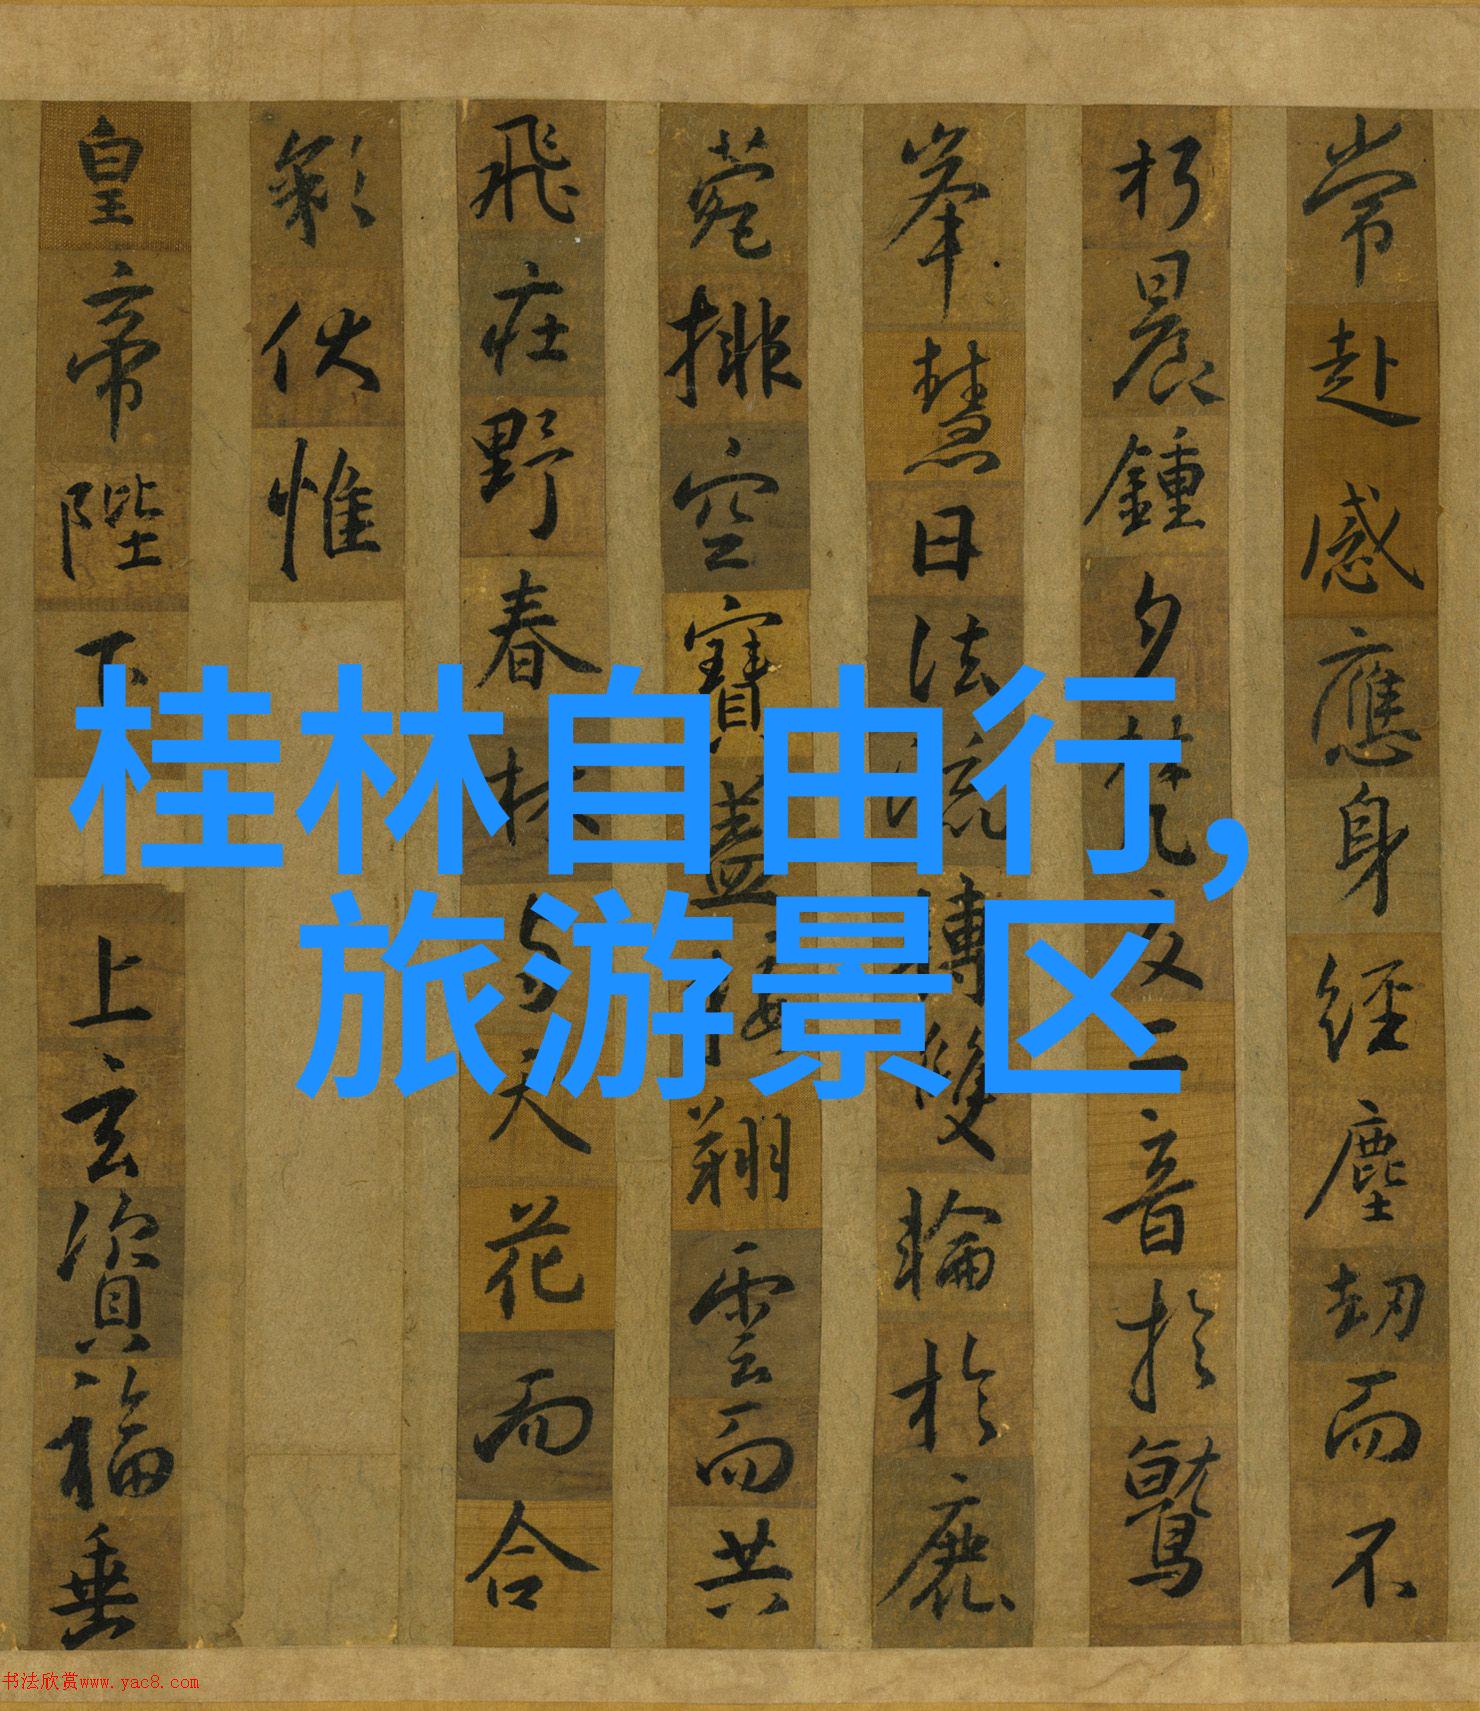 常赴感應身經塵劫而不
朽晨鍾夕梵交二音於鷲
峯慧日法流轉雙輪於鹿
菀排空寶蓋接翔雲而共
飛莊野春林与天花而合
彩伏惟
皇帝陛下
上玄資福垂
桂林自由行,
旅游景区
书法欣赏www.yac8.com